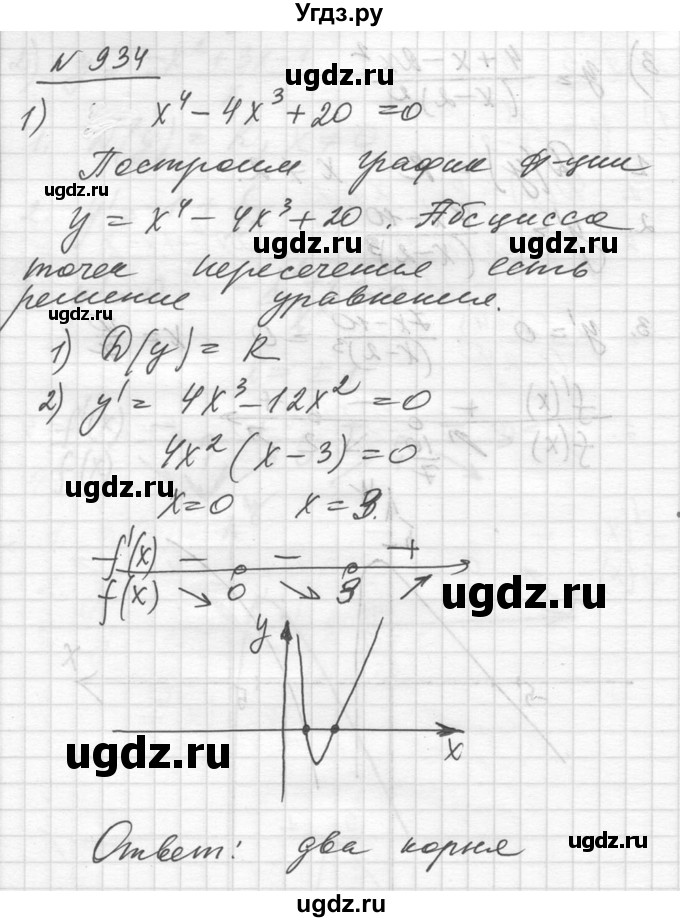 Угдз.ру
N 934
ugdz.ru
1) x⁴ - 4x³ + 20 = 0
ugdz.ru
Построим график ф-ции
ugdz.ru
y = x⁴ - 4x³ + 20. Абсцисса
ugdz.ru
ugdz.ru
точек пересечения есть
решение уравнения.
ugdz.ru
1) D(y) = R
2) y' = 4x³ - 12x² = 0
4x²(x - 3) = 0
ugdz.ru
x = 0 x = 3.
f'(x) - - +
f(x) ↘ 0 ↘ 3 ↗
ugdz.ru
y
ugdz.ru
x
Ответ: два корня
ugdz.ru
ugdz.ru